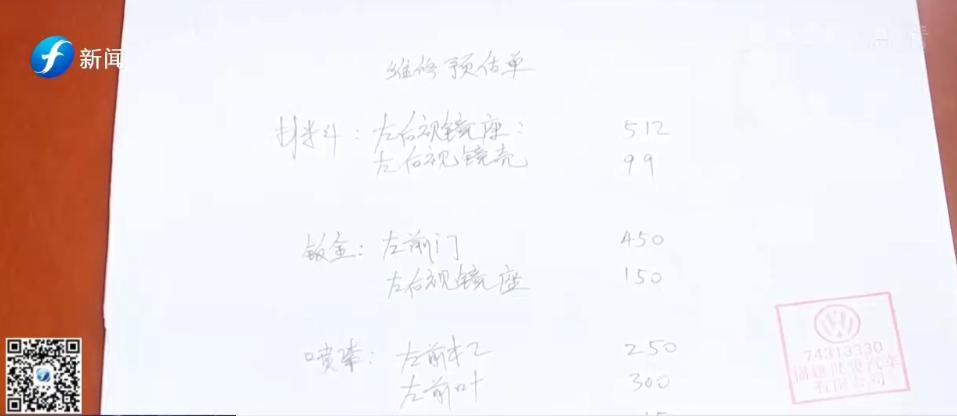 新闻
维修预估单
材料：左后视镜座： 512
左后视镜壳 99
钣金：左前门 450
左后视镜座 150
喷漆： 250
左前叶 300
74313330
有限公司